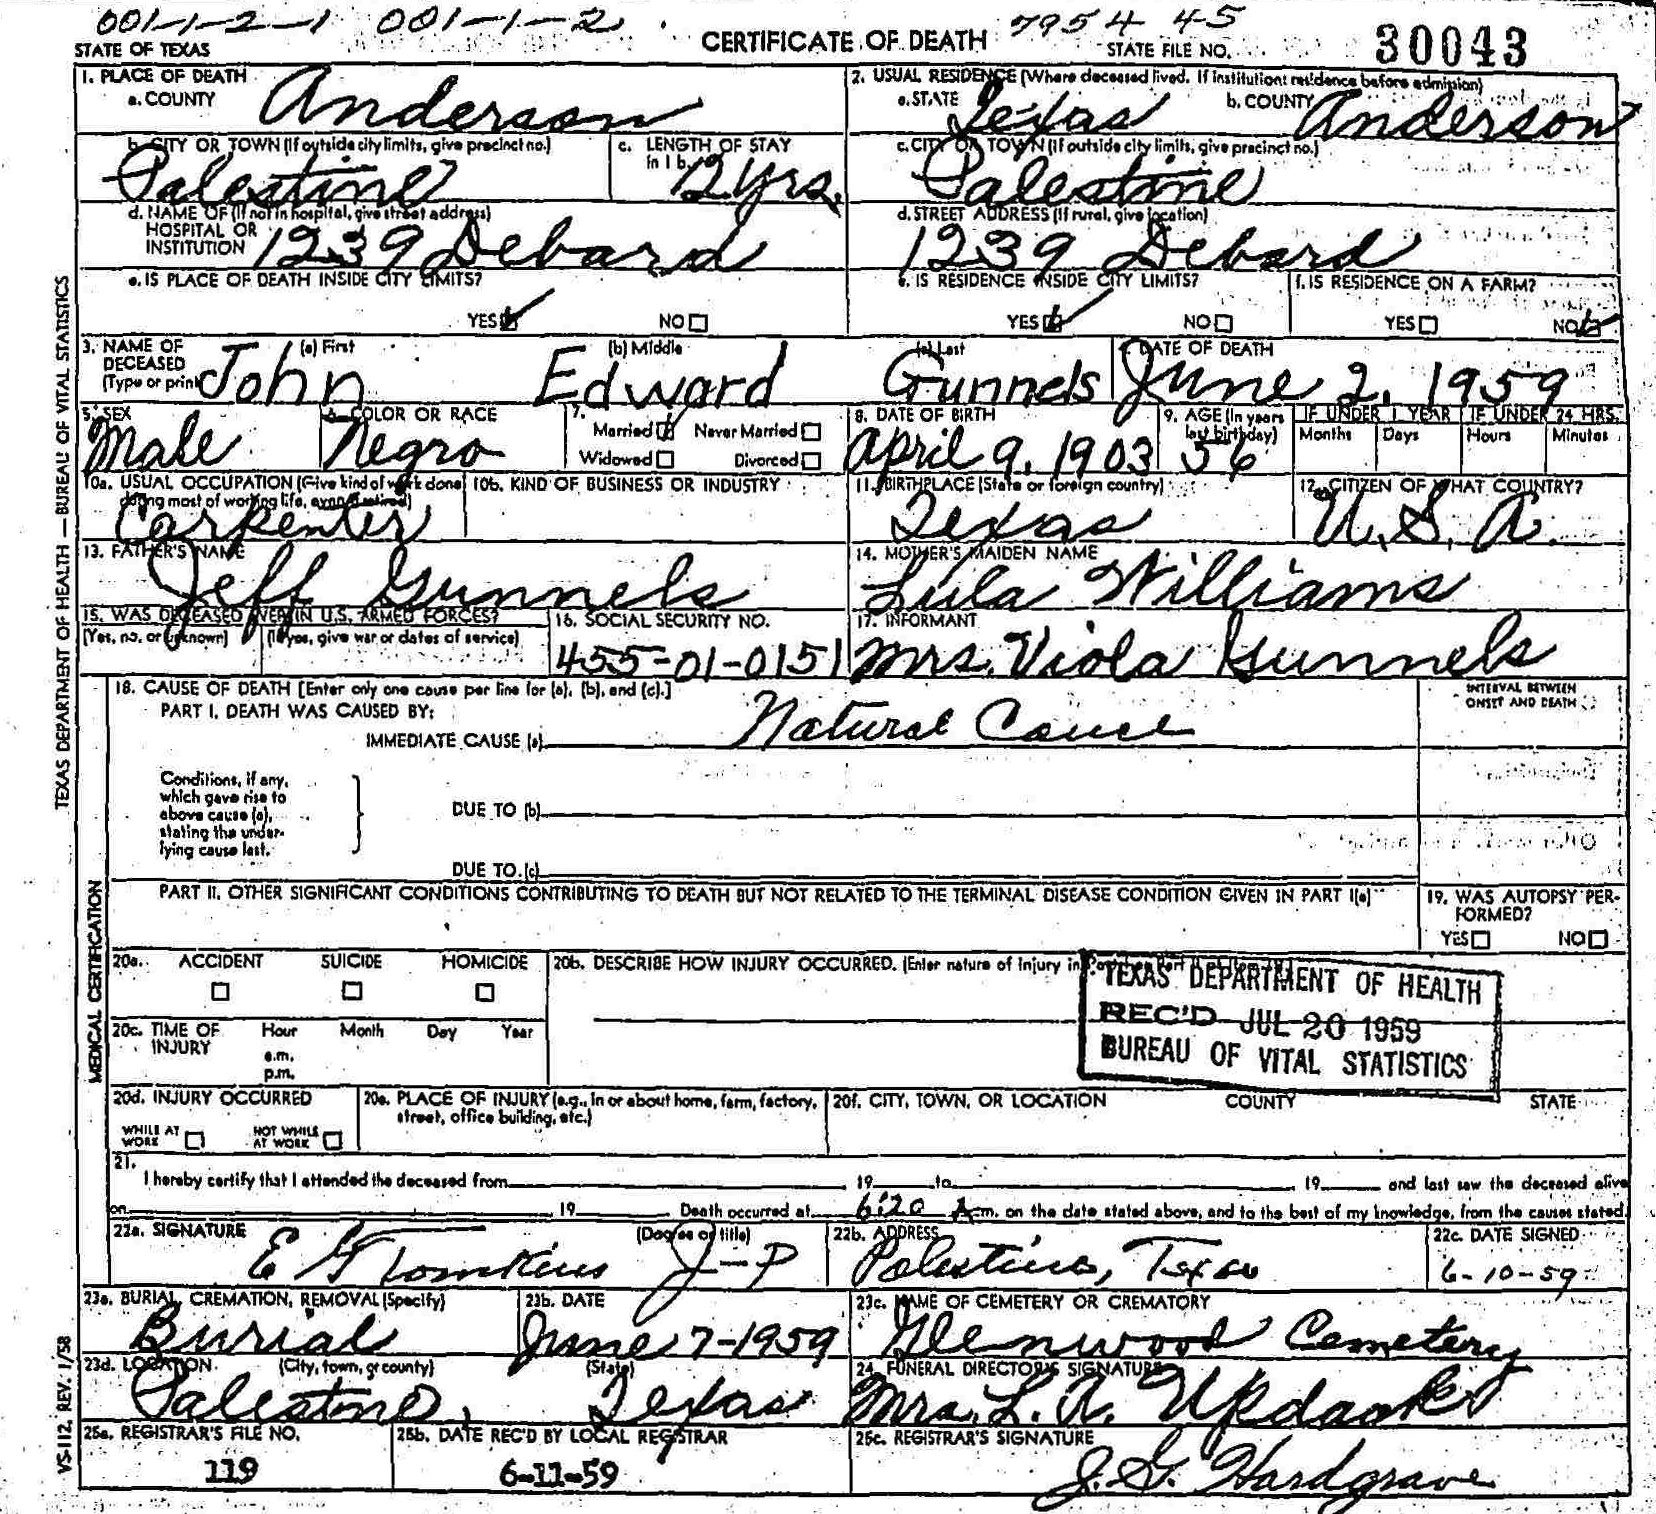 001-1-2-1 001-1-2 7954 45
STATE OF TEXAS CERTIFICATE OF DEATH STATE FILE NO. 30043
1. PLACE OF DEATH
a. COUNTY Anderson
2. USUAL RESIDENCE (Where deceased lived. If institution: residence before admission)
a. STATE Texas b. COUNTY Anderson
b. CITY OR TOWN (If outside city limits, give precinct no.) Palestine
c. LENGTH OF STAY in 1 b. 12 yrs.
c. CITY OR TOWN (If outside city limits, give precinct no.) Palestine
d. NAME OF (If not in hospital, give street address) HOSPITAL OR INSTITUTION 1239 Debard
d. STREET ADDRESS (If rural, give location) 1239 Debard
e. IS PLACE OF DEATH INSIDE CITY LIMITS?
YES NO
e. IS RESIDENCE INSIDE CITY LIMITS?
YES NO
f. IS RESIDENCE ON A FARM?
YES NO
3. NAME OF DECEASED (Type or print) (a) First John (b) Middle Edward (c) Last Gunnels
4. DATE OF DEATH June 2, 1959
5. SEX Male
6. COLOR OR RACE Negro
7. Married Never Married
Widowed Divorced
8. DATE OF BIRTH April 9, 1903
9. AGE (In years last birthday) 56
IF UNDER 1 YEAR IF UNDER 24 HRS.
Months Days Hours Minutes
10a. USUAL OCCUPATION (Give kind of work done during most of working life, even if retired) Carpenter
10b. KIND OF BUSINESS OR INDUSTRY
11. BIRTHPLACE (State or foreign country) Texas
12. CITIZEN OF WHAT COUNTRY? U. S. A.
13. FATHER'S NAME Jeff Gunnels
14. MOTHER'S MAIDEN NAME Lula Williams
15. WAS DECEASED EVER IN U.S. ARMED FORCES?
(Yes, no, or unknown) (If yes, give war or dates of service)
16. SOCIAL SECURITY NO. 455-01-0151
17. INFORMANT Mrs. Viola Gunnels
18. CAUSE OF DEATH [Enter only one cause per line for (a), (b), and (c).]
PART I. DEATH WAS CAUSED BY:
IMMEDIATE CAUSE (a) Natural Cause
INTERVAL BETWEEN ONSET AND DEATH
Conditions, if any, which gave rise to above cause (a), stating the underlying cause last.
DUE TO (b)
DUE TO (c)
PART II. OTHER SIGNIFICANT CONDITIONS CONTRIBUTING TO DEATH BUT NOT RELATED TO THE TERMINAL DISEASE CONDITION GIVEN IN PART I(a)
19. WAS AUTOPSY PERFORMED?
YES NO
20a. ACCIDENT SUICIDE HOMICIDE
20b. DESCRIBE HOW INJURY OCCURRED. (Enter nature of injury in
TEXAS DEPARTMENT OF HEALTH
REC'D JUL 20 1959
BUREAU OF VITAL STATISTICS
20c. TIME OF INJURY Hour Month Day Year
a.m.
p.m.
20d. INJURY OCCURRED
WHILE AT WORK NOT WHILE AT WORK
20e. PLACE OF INJURY (e.g., in or about home, farm, factory, street, office building, etc.)
20f. CITY, TOWN, OR LOCATION COUNTY STATE
21.
I hereby certify that I attended the deceased from 19 to 19 and last saw the deceased alive
on 19 Death occurred at 6:20 A.m. on the date stated above, and to the best of my knowledge, from the causes stated.
22a. SIGNATURE (Degree or title) E G Tomkins J-P
22b. ADDRESS Palestine, Texas
22c. DATE SIGNED 6-10-59
23a. BURIAL, CREMATION, REMOVAL (Specify) Burial
23b. DATE June 7-1959
23c. NAME OF CEMETERY OR CREMATORY Glenwood Cemetery
23d. LOCATION (City, town, or county) (State) Palestine, Texas
24. FUNERAL DIRECTOR'S SIGNATURE Mrs. L. A.
25a. REGISTRAR'S FILE NO. 119
25b. DATE REC'D BY LOCAL REGISTRAR 6-11-59
25c. REGISTRAR'S SIGNATURE J. G. Hardgrave
TEXAS DEPARTMENT OF HEALTH — BUREAU OF VITAL STATISTICS
MEDICAL CERTIFICATION
VS-112, REV. 1/58